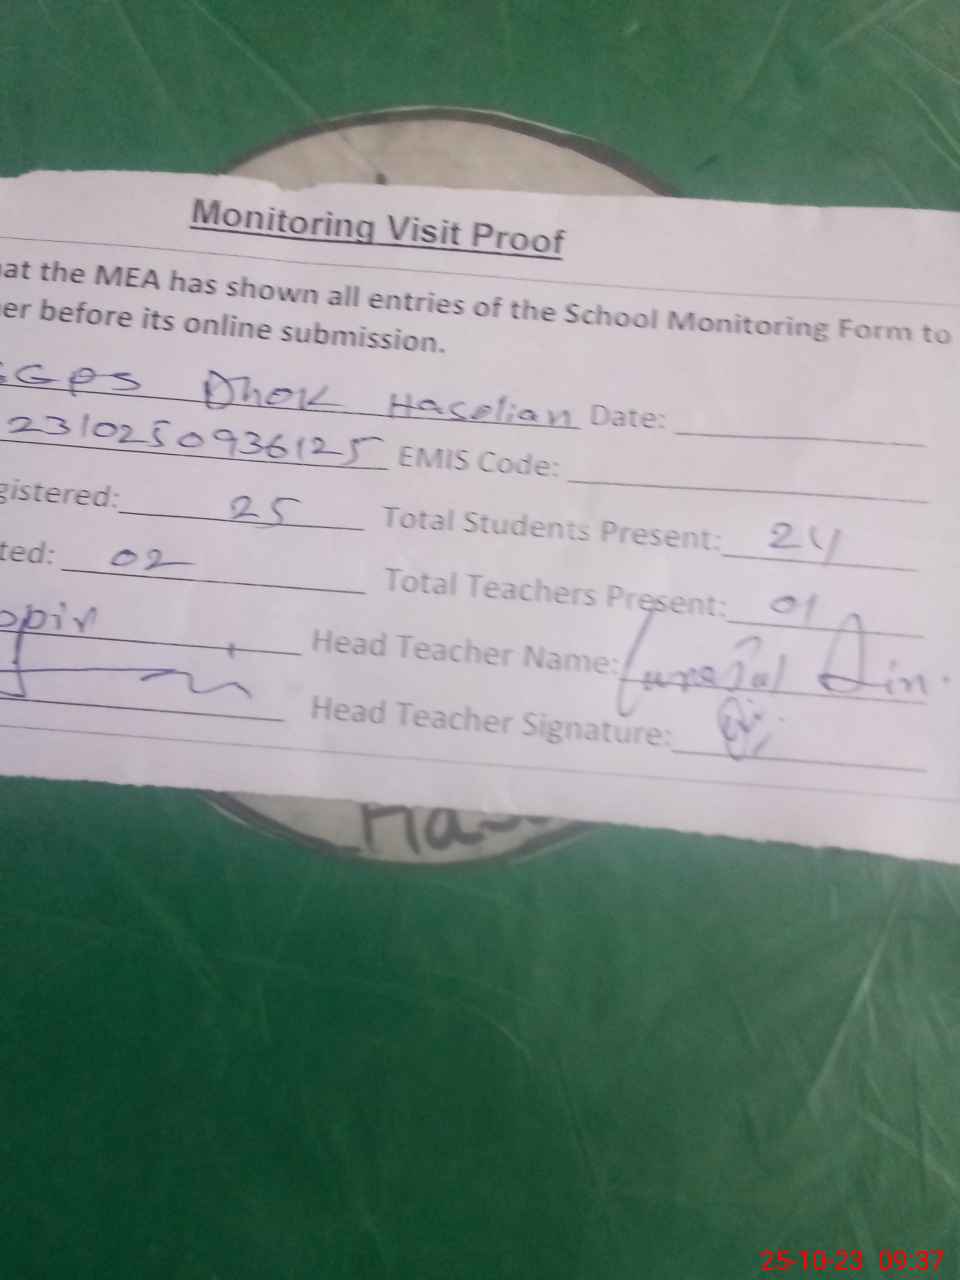 Monitoring Visit Proof
at the MEA has shown all entries of the School Monitoring Form to
er before its online submission.
GPS Dhok Haselian Date:
2310250936125 EMIS Code:
gistered: 25 Total Students Present: 24
ted: 02 Total Teachers Present: 01
Head Teacher Name: Din.
Head Teacher Signature:
Ha
25-10-23 09:37